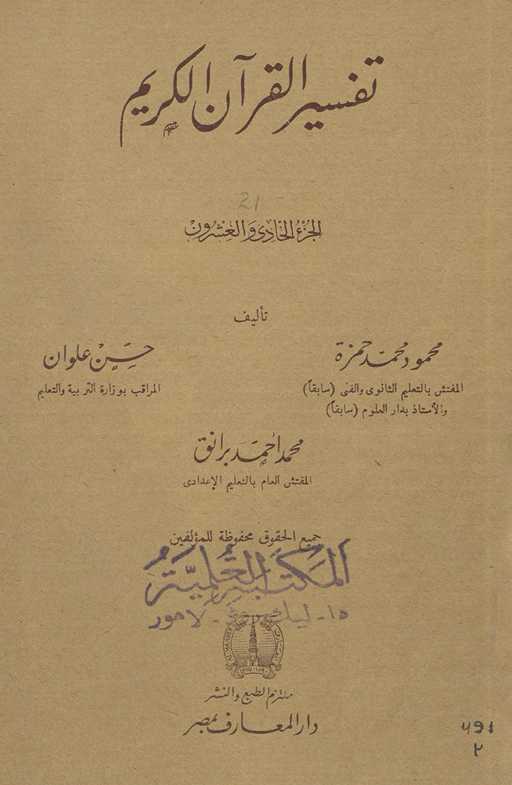 تفسير القرآن الكريم
21
الجزء الحادى والعشرون
تأليف
محمود محمد حمزة
المفتش بالتعليم الثانوى والفنى (سابقاً)
والأستاذ بدار العلوم (سابقاً)
حسين علوان
المراقب بوزارة التربية والتعليم
محمد أحمد برانق
المفتش العام بالتعليم الإعدادى
جميع الحقوق محفوظة للمؤلفين
المكتبة العلمية
١٥- ليك روڈ - لاهور
ملتزم الطبع والنشر
دار المعارف بمصر